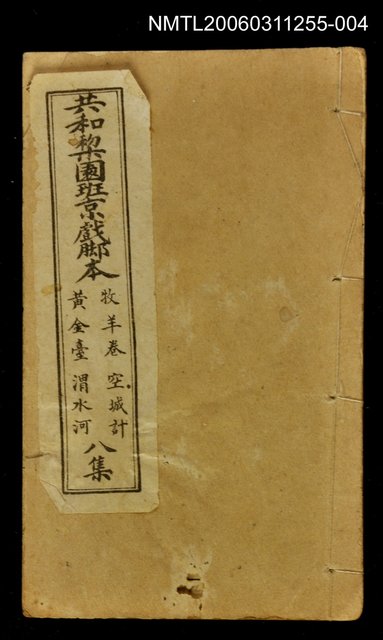 NMTL20060311255-004
共和棃園班京戲脚本
牧羊卷 空城計
黃金臺 渭水河
八集